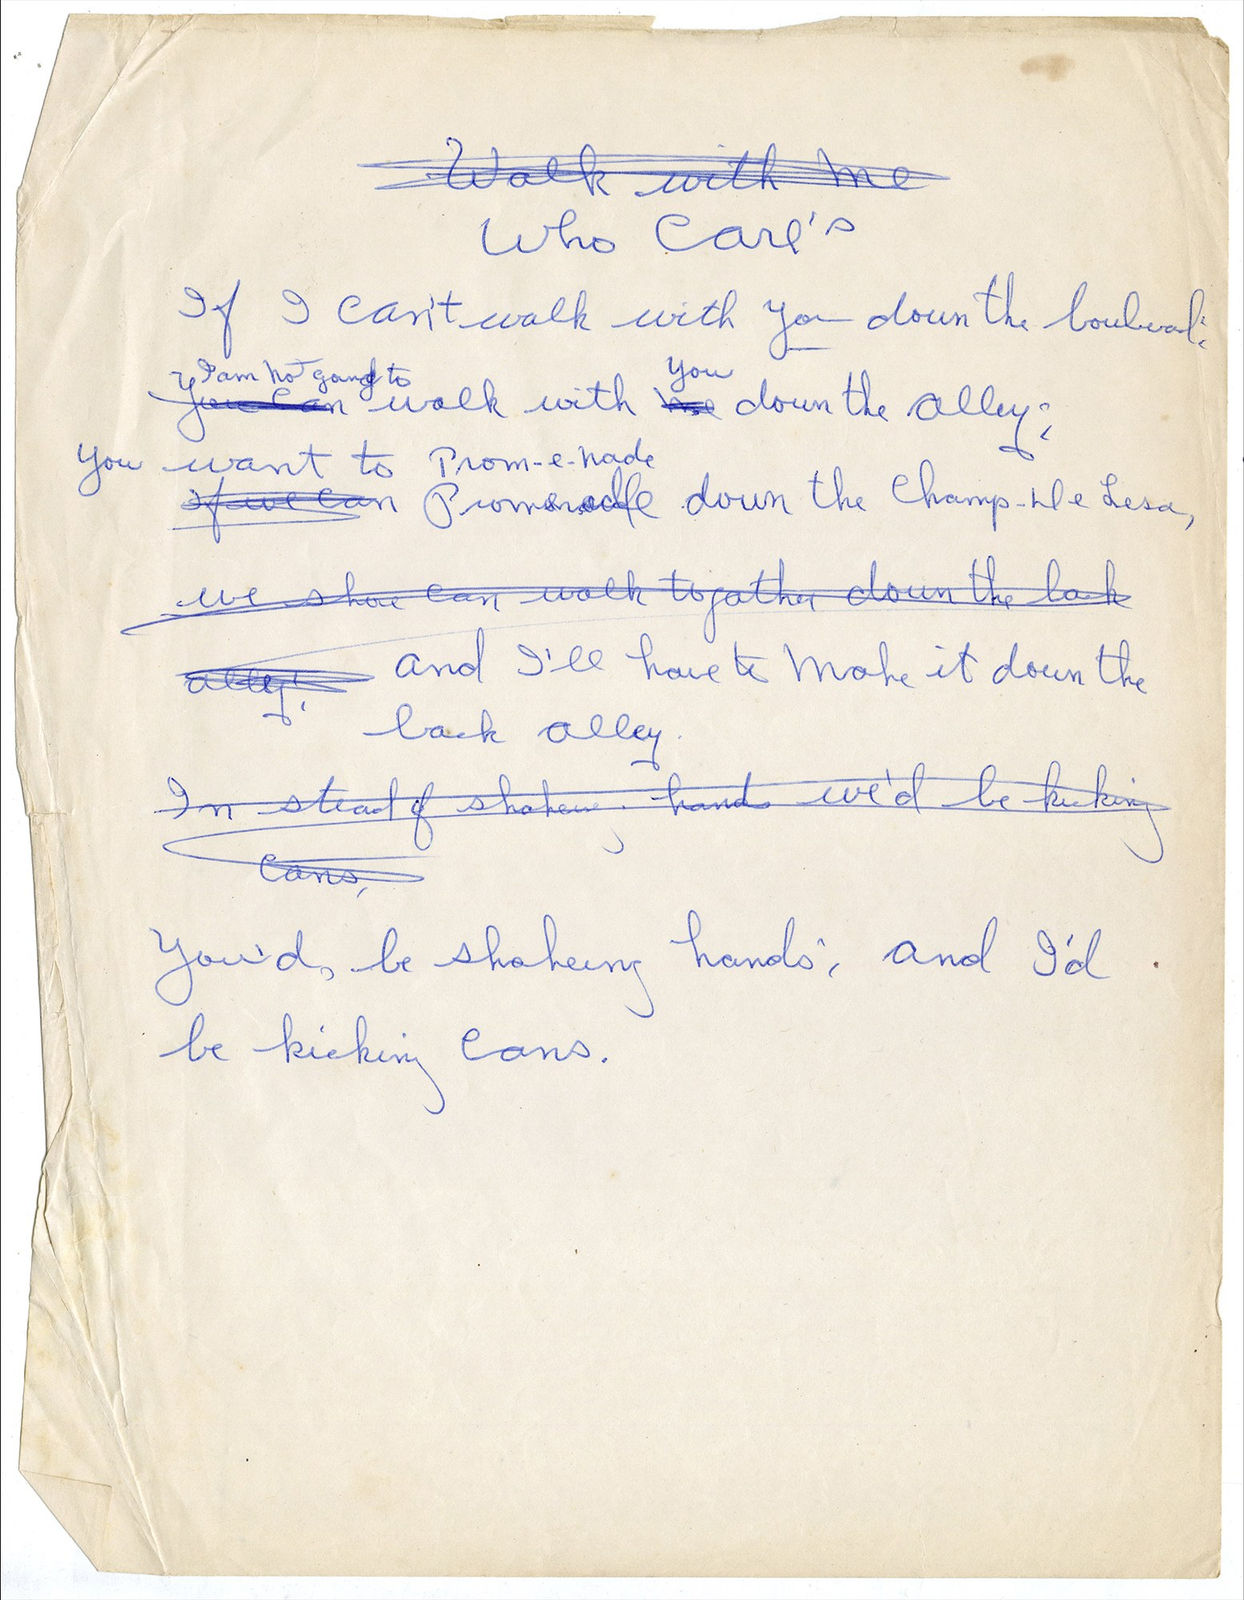 Walk with me
Who Care's
If I can't walk with you down the boulevard;
I am not going to you
You can walk with me down the alley;
You want to Prom-e-nade
If we can Promonade down the Champ-De Lesa,
we shoe can walk togather down the back
alley; and I'll have to make it down the
back alley.
In stead of shakeing hands we'd be kicking
cans,
You'd, be shakeing hands; and I'd
be kicking cans.